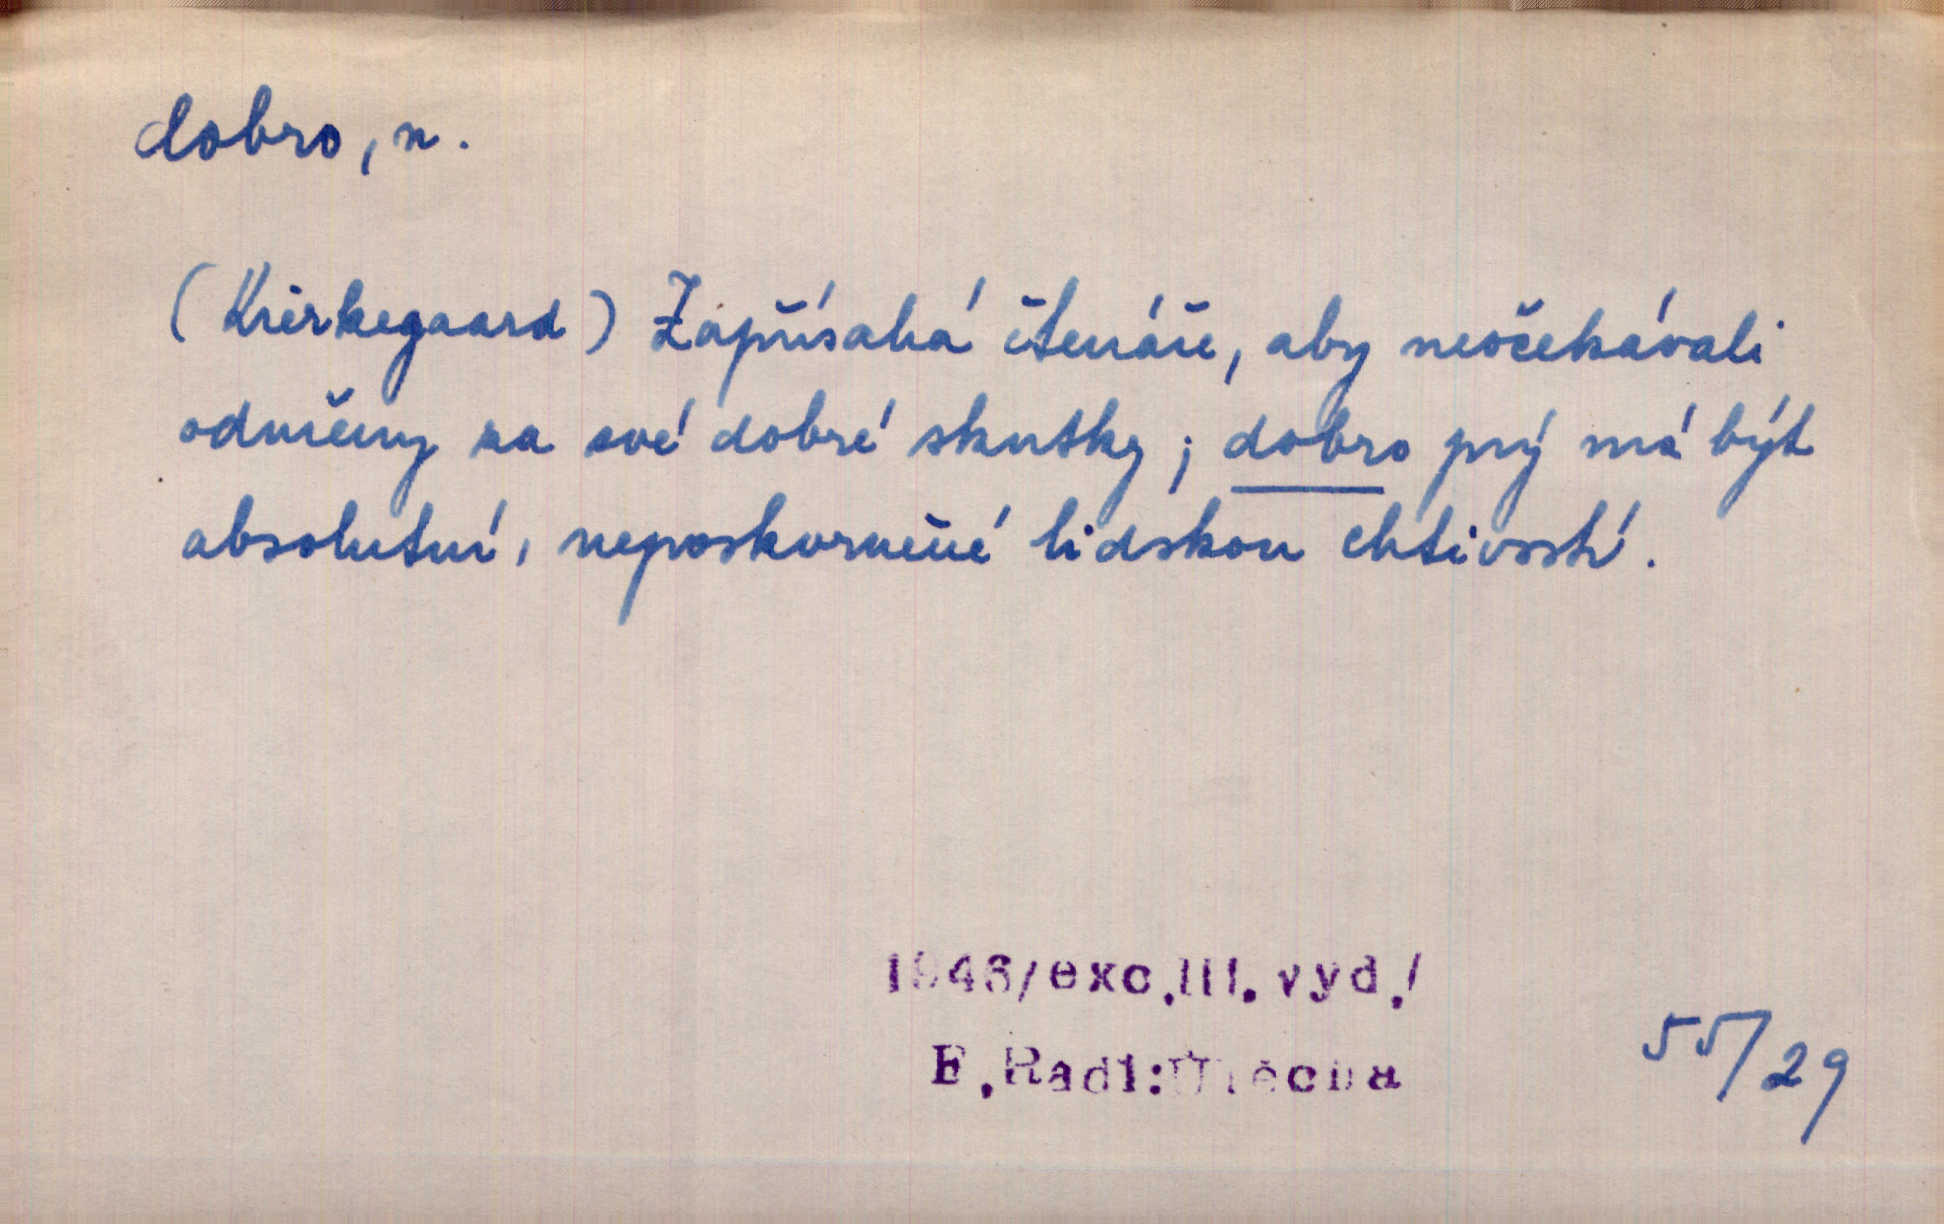 dobro, n.
(Kierkegaard) Zapřísahá čtenáře, aby neočekávali
odměny za své dobré skutky; dobro prý má být
absolutní, neposkvrněné lidskou chtivostí.
1946/exc.III.vyd./
E.Rádl:Útěcha
55/29